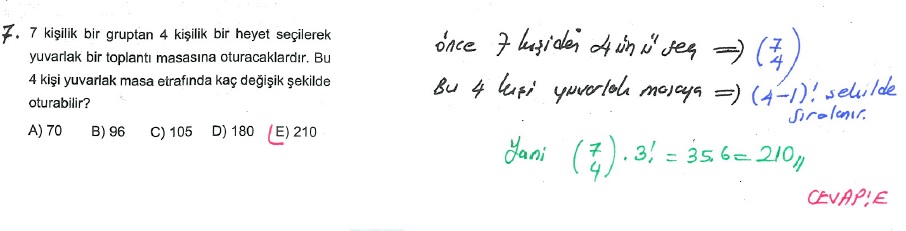 7. 7 kişilik bir gruptan 4 kişilik bir heyet seçilerek
yuvarlak bir toplantı masasına oturacaklardır. Bu
4 kişi yuvarlak masa etrafında kaç değişik şekilde
oturabilir?
A) 70 B) 96 C) 105 D) 180 E) 210
önce 7 kişiden 4 ünü seç => (7 4)
Bu 4 kişi yuvarlak masaya => (4-1)! şekilde
sıralanır.
Yani (7 4) . 3! = 35.6 = 210,,
CEVAP: E